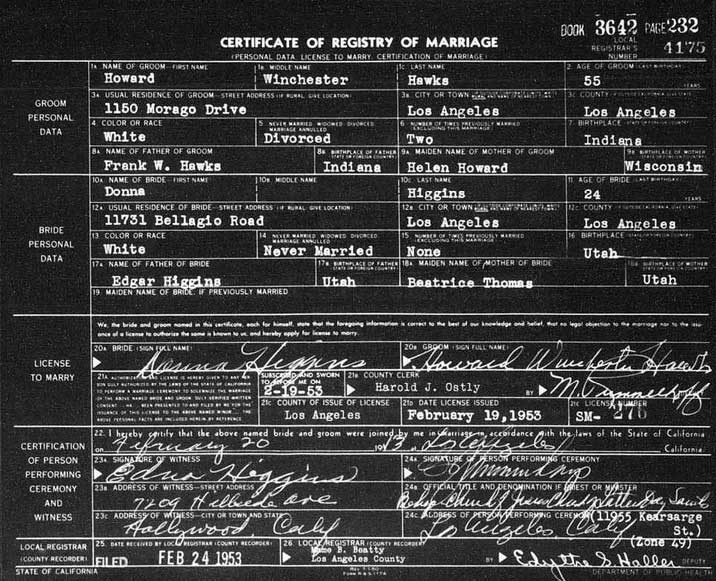 BOOK 3642 PAGE 232
LOCAL
REGISTRAR'S 4175
NUMBER
CERTIFICATE OF REGISTRY OF MARRIAGE
(PERSONAL DATA LICENSE TO MARRY, CERTIFICATION OF MARRIAGE)
GROOM PERSONAL DATA
1A NAME OF GROOM—FIRST NAME 1B MIDDLE NAME 1C LAST NAME 2. AGE OF GROOM (LAST BIRTHDAY)
Howard Winchester Hawks 55 YEARS
3A USUAL RESIDENCE OF GROOM—STREET ADDRESS (IF RURAL, GIVE LOCATION) 3B. CITY OR TOWN 3C. COUNTY
1150 Morago Drive Los Angeles Los Angeles
4 COLOR OR RACE 5 NEVER MARRIED WIDOWED DIVORCED MARRIAGE ANNULLED 6 NUMBER OF TIMES PREVIOUSLY MARRIED (EXCLUDING THIS MARRIAGE) 7. BIRTHPLACE
White Divorced Two Indiana
8A NAME OF FATHER OF GROOM 8B BIRTHPLACE OF FATHER 9A MAIDEN NAME OF MOTHER OF GROOM 9B BIRTHPLACE OF MOTHER
Frank W. Hawks Indiana Helen Howard Wisconsin
BRIDE PERSONAL DATA
10A NAME OF BRIDE—FIRST NAME 10B MIDDLE NAME 10C LAST NAME 11. AGE OF BRIDE (LAST BIRTHDAY)
Donna Higgins 24 YEARS
12A USUAL RESIDENCE OF BRIDE—STREET ADDRESS (IF RURAL, GIVE LOCATION) 12B CITY OR TOWN 12C COUNTY
11731 Bellagio Road Los Angeles Los Angeles
13 COLOR OR RACE 14 NEVER MARRIED WIDOWED DIVORCED MARRIAGE ANNULLED 15 NUMBER OF TIMES PREVIOUSLY MARRIED (EXCLUDING THIS MARRIAGE) 16 BIRTHPLACE
White Never Married None Utah
17A NAME OF FATHER OF BRIDE 17B BIRTHPLACE OF FATHER 18A MAIDEN NAME OF MOTHER OF BRIDE 18B BIRTHPLACE OF MOTHER
Edgar Higgins Utah Beatrice Thomas Utah
19 MAIDEN NAME OF BRIDE, IF PREVIOUSLY MARRIED
LICENSE TO MARRY
We, the bride and groom named in this certificate, each for himself, state that the foregoing information is correct to the best of our knowledge and belief, that no legal objection to the marriage nor to the issuance of a license to authorize the same is known to us, and hereby apply for license to marry.
20A BRIDE (SIGN FULL NAME) 20B GROOM (SIGN FULL NAME)
Higgins Howard Winchester Hawks
21A AUTHORIZATION AND LICENSE IS HEREBY GIVEN TO ANY PERSON DULY AUTHORIZED BY THE LAWS OF THE STATE OF CALIFORNIA TO PERFORM A MARRIAGE CEREMONY TO SOLEMNIZE THE MARRIAGE OF THE ABOVE NAMED BRIDE AND GROOM
SUBSCRIBED AND SWORN TO BEFORE ME ON
2-19-53
COUNTY CLERK
Harold J. Ostly BY
COUNTY OF ISSUE OF LICENSE DATE LICENSE ISSUED LICENSE NUMBER
Los Angeles February 19,1953 SM-
CERTIFICATION OF PERSON PERFORMING CEREMONY AND WITNESS
22. I hereby certify that the above named bride and groom were joined by me in marriage in accordance with the laws of the State of California
on February 20 1953 Los Angeles California
23A. SIGNATURE OF WITNESS 24A SIGNATURE OF PERSON PERFORMING CEREMONY
Higgins
23B ADDRESS OF WITNESS—STREET ADDRESS 24B OFFICIAL TITLE AND DENOMINATION IF PRIEST OR MINISTER
7209 Hillside Ave Bishop Church of Jesus Christ Latter Day Saints
23C ADDRESS OF WITNESS—CITY OR TOWN AND STATE 24C ADDRESS OF PERSON PERFORMING CEREMONY
Hollywood Calif Los Angeles Calif (11955 Kearsarge St.)
(Zone 49)
LOCAL REGISTRAR (COUNTY RECORDER)
25. DATE RECEIVED BY LOCAL REGISTRAR (COUNTY RECORDER) 26 LOCAL REGISTRAR (COUNTY RECORDER)
FILED FEB 24 1953 Mame B. Beatty
Los Angeles County BY Edythe S. Haller DEPUTY
STATE OF CALIFORNIA DEPARTMENT OF PUBLIC HEALTH